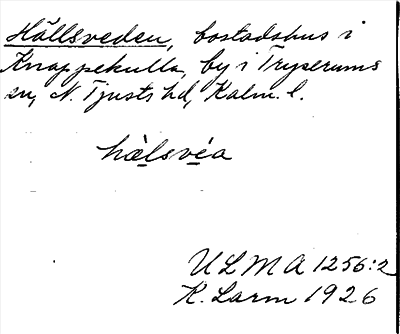 Hällsveden, bostadshus i
Knappekulla, by i Tryserums
sn, N. Tjusts hd, Kalm. l.
hàlsvéa
ULMA 1256:2
K. Larm 1926